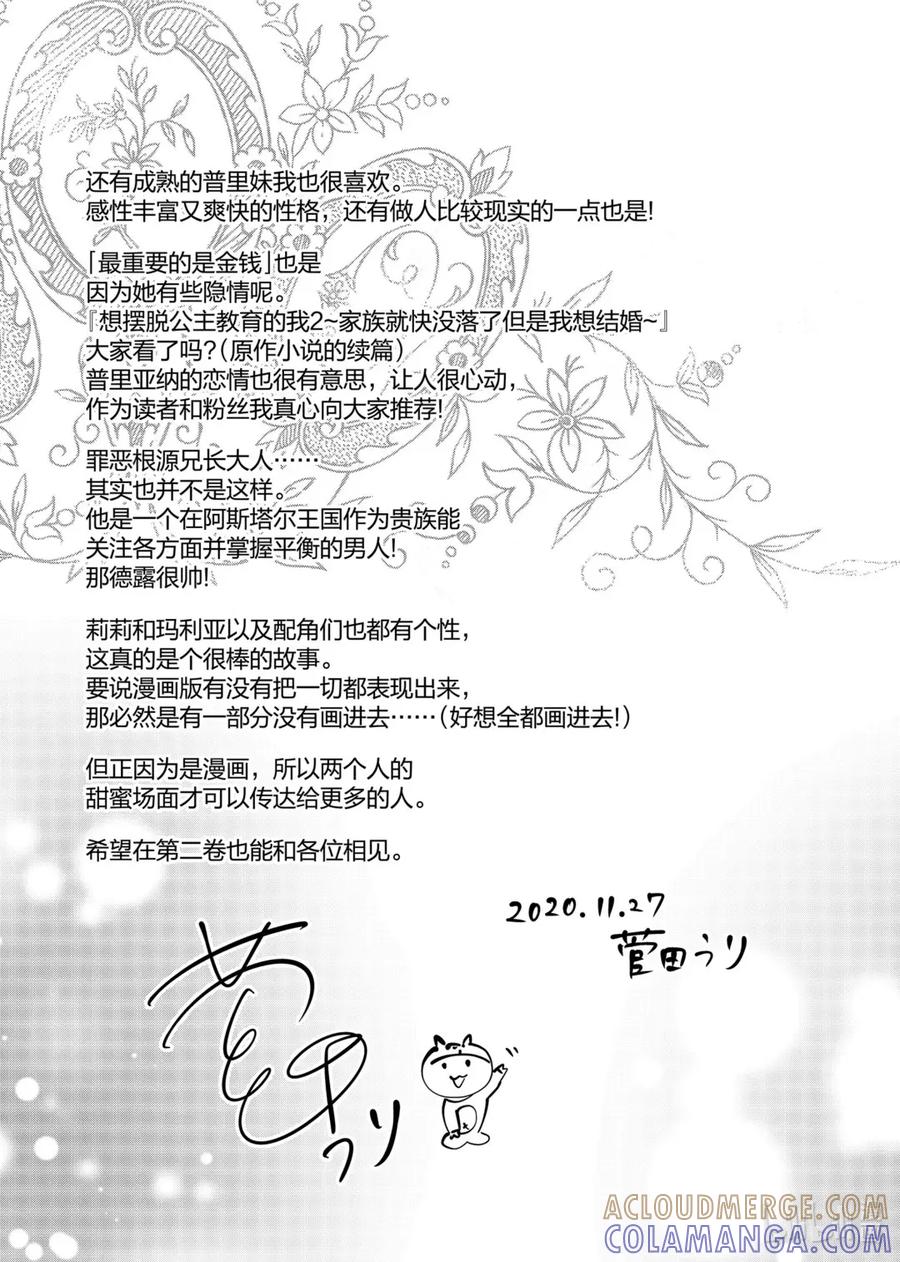 还有成熟的普里妹我也很喜欢。
感性丰富又爽快的性格，还有做人比较现实的一点也是！
「最重要的是金钱」也是
因为她有些隐情呢。
『想摆脱公主教育的我2~家族就快没落了但是我想结婚~』
大家看了吗？（原作小说的续篇）
普里亚纳的恋情也很有意思，让人很心动，
作为读者和粉丝我真心向大家推荐！
罪恶根源兄长大人……
其实也并不是这样。
他是一个在阿斯塔尔王国作为贵族能
关注各方面并掌握平衡的男人！
那德露很帅！
莉莉和玛利亚以及配角们也都有个性，
这真的是个很棒的故事。
要说漫画版有没有把一切都表现出来，
那必然是有一部分没有画进去……（好想全都画进去！）
但正因为是漫画，所以两个人的
甜蜜场面才可以传达给更多的人。
希望在第二卷也能和各位相见。
2020.11.27
菅田うり
うり
ACLOUDMERGE.COM
COLAMANGA.COM